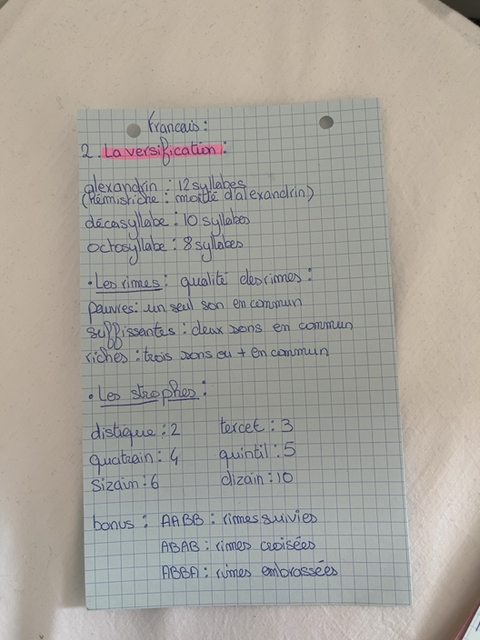 Francais :
2. La versification :
alexandrin : 12 syllabes
(Hémistiche : moitié d'alexandrin)
décasyllabe : 10 syllabes
octosyllabe : 8 syllabes
• Les rimes : qualité des rimes :
pauvres : un seul son en commun
suffissantes : deux sons en commun
riches : trois sons ou + en commun
• Les strophes :
distique : 2 tercet : 3
quatrain : 4 quintil : 5
sizain : 6 dizain : 10
bonus : AABB : rimes suivies
ABAB : rimes croisées
ABBA : rimes embrassées